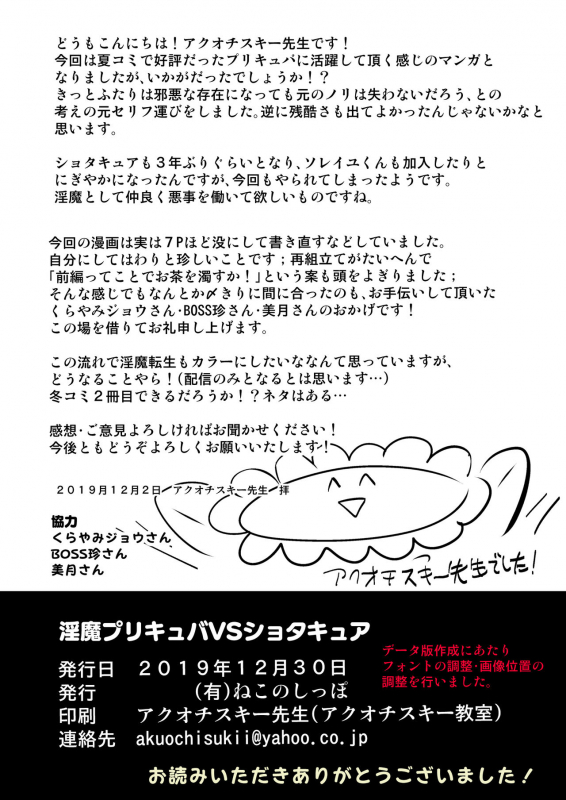 どうもこんにちは!アクオチスキー先生です!
今回は夏コミで好評だったプリキュバに活躍して頂く感じのマンガと
なりましたが、いかがだったでしょうか!?
きっとふたりは邪悪な存在になっても元のノリは失わないだろう、との
考えの元セリフ運びをしました。逆に残酷さも出てよかったんじゃないかなと
思います。
ショタキュアも3年ぶりぐらいとなり、ソレイユくんも加入したりと
にぎやかになったんですが、今回もやられてしまったようです。
淫魔として仲良く悪事を働いて欲しいものですね。
今回の漫画は実は7Pほど没にして書き直すなどしていました。
自分にしてはわりと珍しいことです;再組立てがたいへんで
「前編ってことでお茶を濁すか!」という案も頭をよぎりました;
そんな感じでもなんとか〆きりに間に合ったのも、お手伝いして頂いた
くらやみジョウさん・BOSS珍さん・美月さんのおかげです!
この場を借りてお礼申し上げます。
この流れで淫魔転生もカラーにしたいななんて思っていますが、
どうなることやら!(配信のみとなるとは思います…)
冬コミ2冊目できるだろうか!?ネタはある…
感想・ご意見よろしければお聞かせください!
今後ともどうぞよろしくお願いいたします!
2019月12月2日 アクオチスキー先生 拝
協力
くらやみジョウさん
BOSS珍さん
美月さん
アクオチスキー先生でした!
淫魔プリキュバVSショタキュア
発行日 2019年12月30日
発行 (有)ねこのしっぽ
印刷 アクオチスキー先生(アクオチスキー教室)
連絡先 akuochisukii@yahoo.co.jp
データ版作成にあたり
フォントの調整・画像位置の
調整を行いました。
お読みいただきありがとうございました!